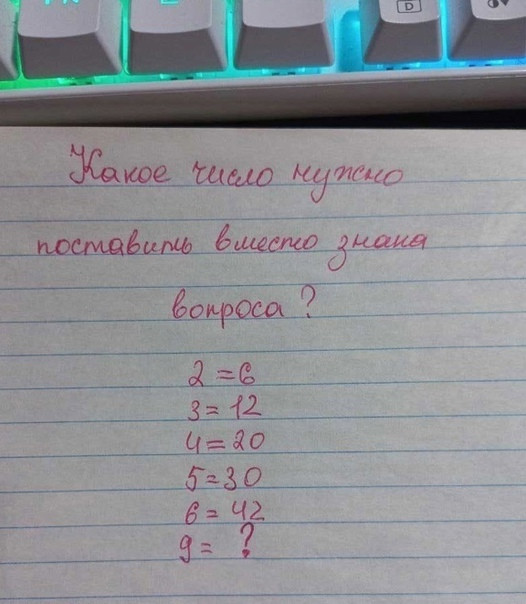 Какое число нужно
поставить вместо знака
вопроса?
2 = 6
3 = 12
4 = 20
5 = 30
6 = 42
9 = ?